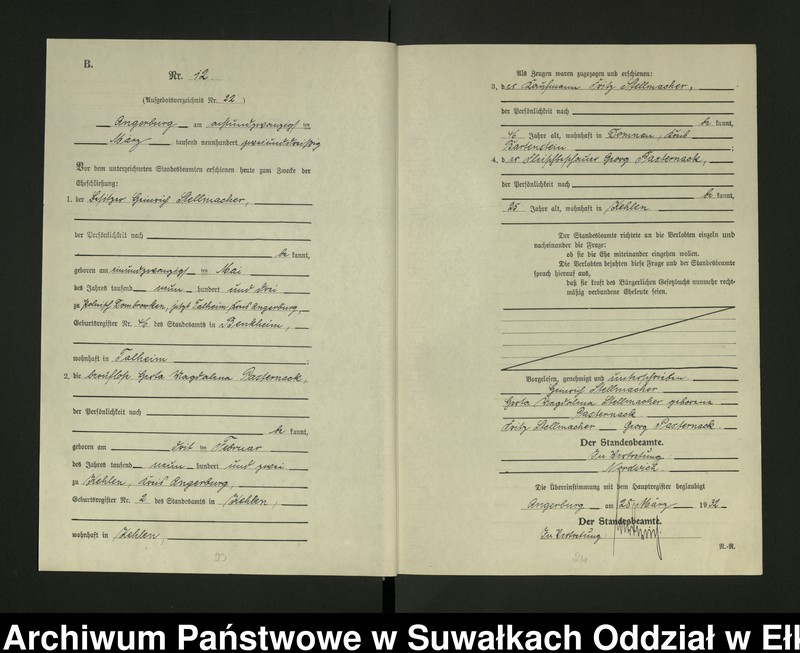 B.
Nr. 12
(Aufgebotsverzeichnis Nr. 22)
Angerburg am achtundzwanzigsten
März tausend neunhundert zweiunddreißig
Vor dem unterzeichneten Standesbeamten erschienen heute zum Zwecke der
Eheschließung:
1. der Besitzer Heinrich Stellmacher,
der Persönlichkeit nach
be kannt,
geboren am neunundzwanzigsten Mai
des Jahres tausend neun hundert und drei
zu Polnisch Dombrowken, jetzt Talheim, Kreis Angerburg,
Geburtsregister Nr. 46 des Standesamts in Benkheim,
wohnhaft in Talheim ;
2. die berufslose Gerta Magdalena Pasternack,
der Persönlichkeit nach
be kannt,
geboren am Februar
des Jahres tausend neun hundert und zwei
zu Kehlen, Kreis Angerburg,
Geburtsregister Nr. 2 des Standesamts in Kehlen,
wohnhaft in Kehlen,
Als Zeugen waren zugezogen und erschienen:
3. der Kaufmann Fritz Stellmacher,
der Persönlichkeit nach
be kannt,
46 Jahre alt, wohnhaft in Domnau, Kreis
Bartenstein ;
4. der Georg Pasternack,
der Persönlichkeit nach
be kannt,
25 Jahre alt, wohnhaft in Kehlen
Der Standesbeamte richtete an die Verlobten einzeln und
nacheinander die Frage:
ob sie die Ehe miteinander eingehen wollen.
Die Verlobten bejahten diese Frage und der Standesbeamte
sprach hierauf aus,
daß sie kraft des Bürgerlichen Gesetzbuchs nunmehr recht-
mäßig verbundene Eheleute seien.
Vorgelesen, genehmigt und unterschrieben
Heinrich Stellmacher
Gerta Magdalena Stellmacher geborene
Pasternack
Fritz Stellmacher Georg Pasternack
Der Standesbeamte.
In Vertretung
Die Übereinstimmung mit dem Hauptregister beglaubigt
Angerburg am 28. März 1932
Der Standesbeamte.
In Vertretung
R.-R.
Archiwum Państwowe w Suwałkach Oddział w Ełk